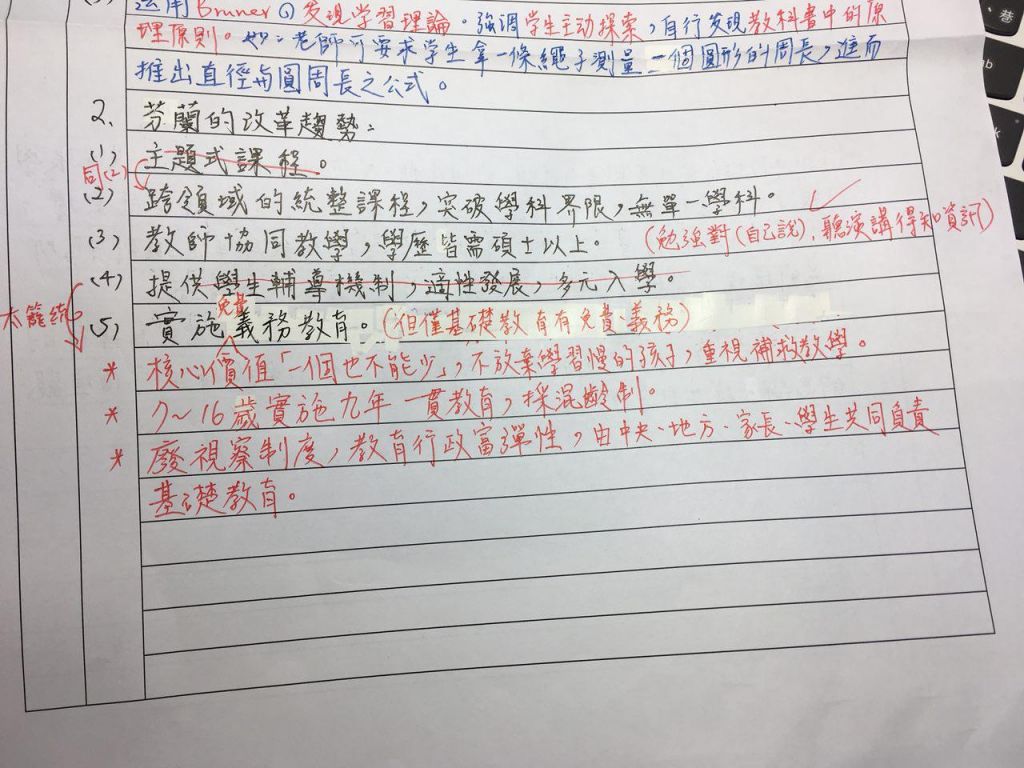 法用Bruner的發現学習理論。強調学生主动探索,自行发現教科書中的原
理原則。如:老師可要求学生拿一條繩子測量一個圓形的周長,進而
推出直徑与圓周長之公式。
2. 芬蘭的改革趨勢:
(1) 主題式課程。
同(2)
(2) 跨領域的統整課程,突破學科界限,無單一學科。
(3) 教師協同教學,學歷皆需碩士以上。
(勉強對(自己說),聽演講得知資訊)
(4) 提供學生輔導機制,適性發展,多元入學。
太籠統
免費
(5) 實施義務教育。(但僅基礎教育有免費義務)
* 核心價值「一個也不能少」,不放棄學習慢的孩子,重視補救教學。
* 7~16歲實施九年一貫教育,採混齡制。
* 廢視察制度,教育行政富彈性,由中央、地方、家長、學生共同負責
基礎教育。